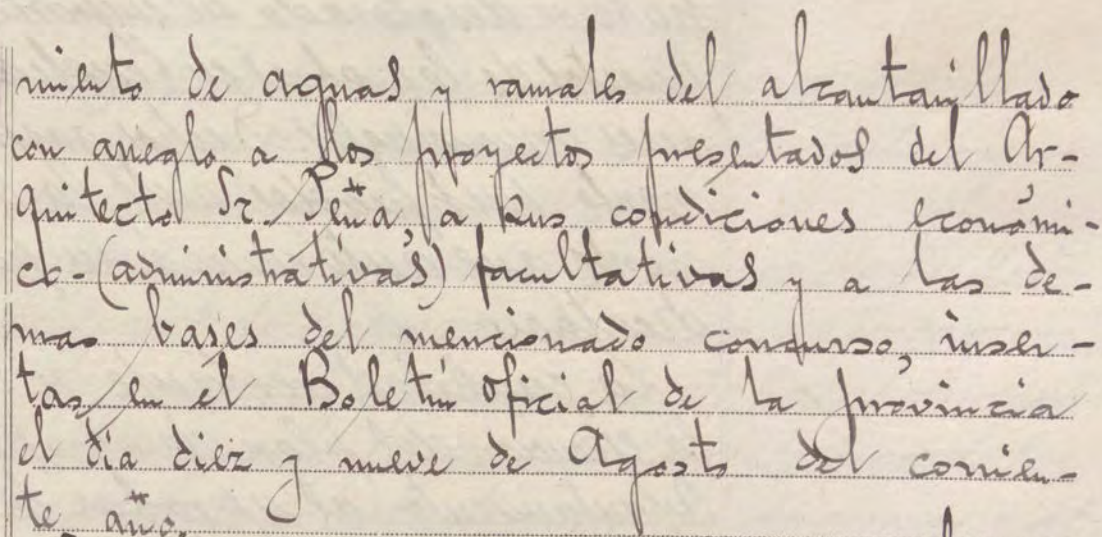 miento de aguas y ramales del alcantarillado
con arreglo a los proyectos presentados del Ar-
quitecto Sr. Peña, a sus condiciones económi-
co-(administrativas) facultativas y a las de-
mas bases del mencionado concurso, inser-
tas en el Boletín oficial de la provincia
el día diez y nueve de Agosto del corrien-
te año.